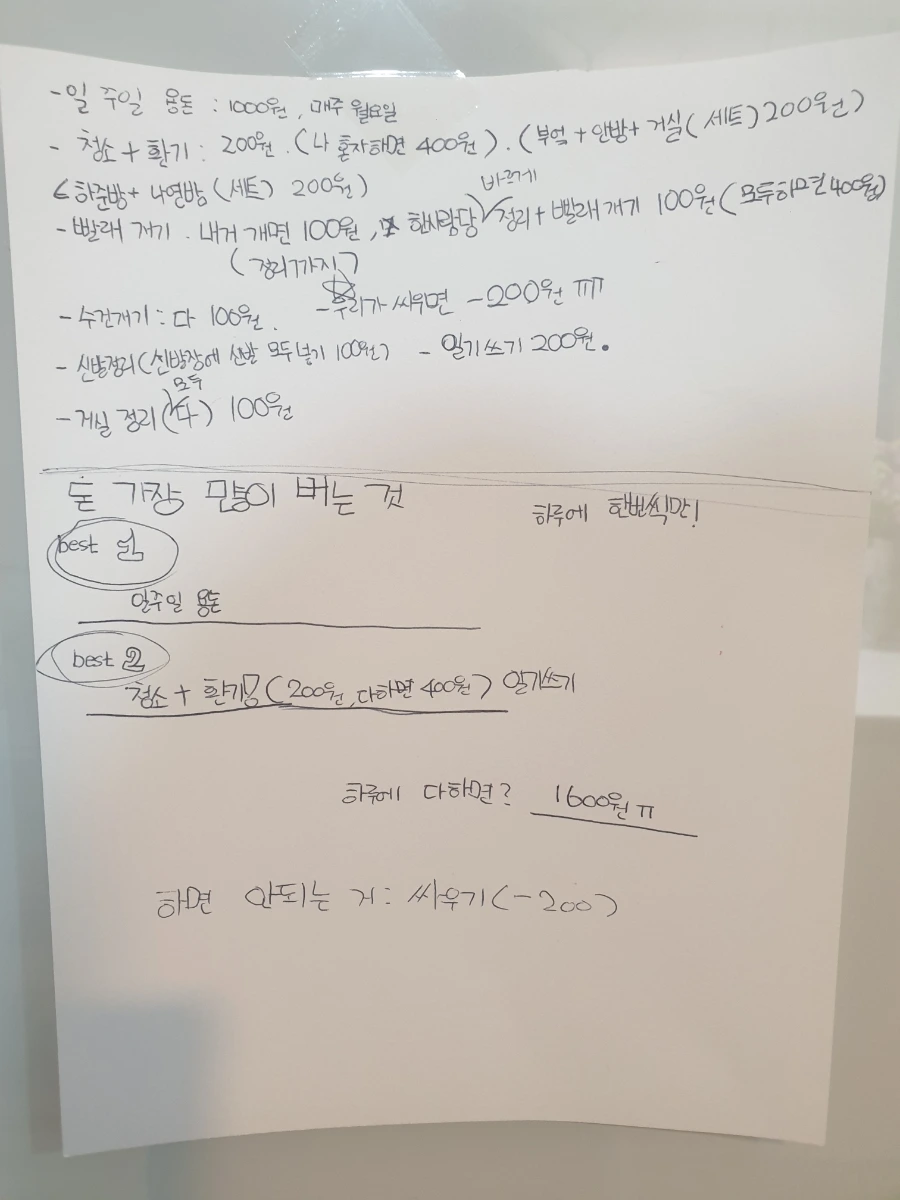 - 일 주일 용돈 : 1000원, 매주 월요일
- 청소 + 환기 : 200원. (나 혼자하면 400원). (부엌 + 안방 + 거실 (세트) 200원)
(하준방 + 나연방 (세트) 200원)
- 빨래 개기. 내거 개면 100원, 한사람당 바르게 정리 + 빨래개기 100원 (모두하면 400원)
(정리까지)
- 수건개기 : 다 100원. - 우리가 싸우면 -200원 ㅠㅠ
- 신발정리 (신발장에 신발 모두 넣기 100원) - 일기쓰기 200원.
- 거실 정리 (모두 다) 100원
돈 가장 많이 버는 것
하루에 한번씩만!
best 1
일주일 용돈
best 2
청소 + 환기 (200원, 다하면 400원) 일기쓰기
하루에 다하면? 1600원 ㅠ
하면 안되는 거 : 싸우기 (-200)